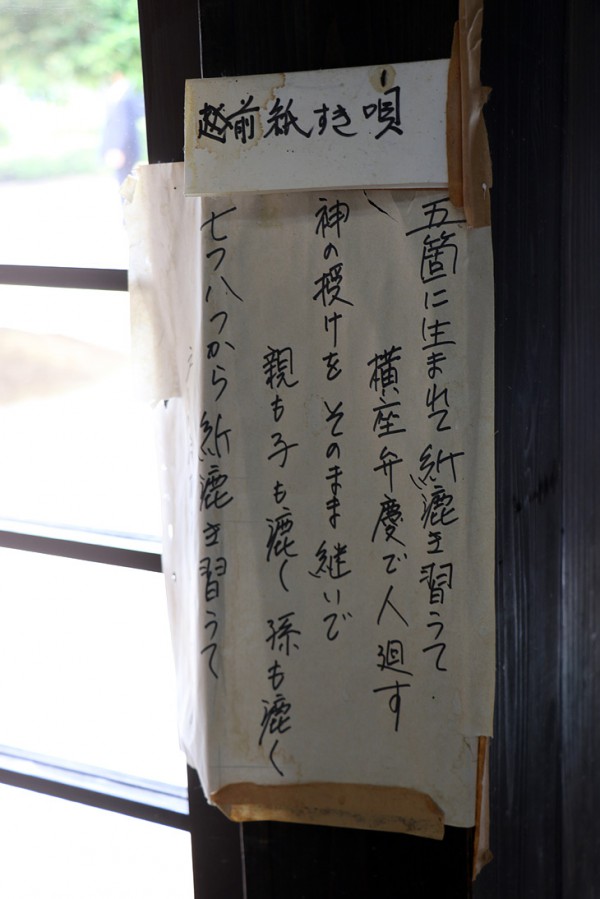 越前紙すき唄
五箇に生まれて 紙漉き習うて
横座弁慶で人廻す
神の授けを そのまま 継いで
親も子も漉く 孫も漉く
七つ八つから 紙漉き習うて